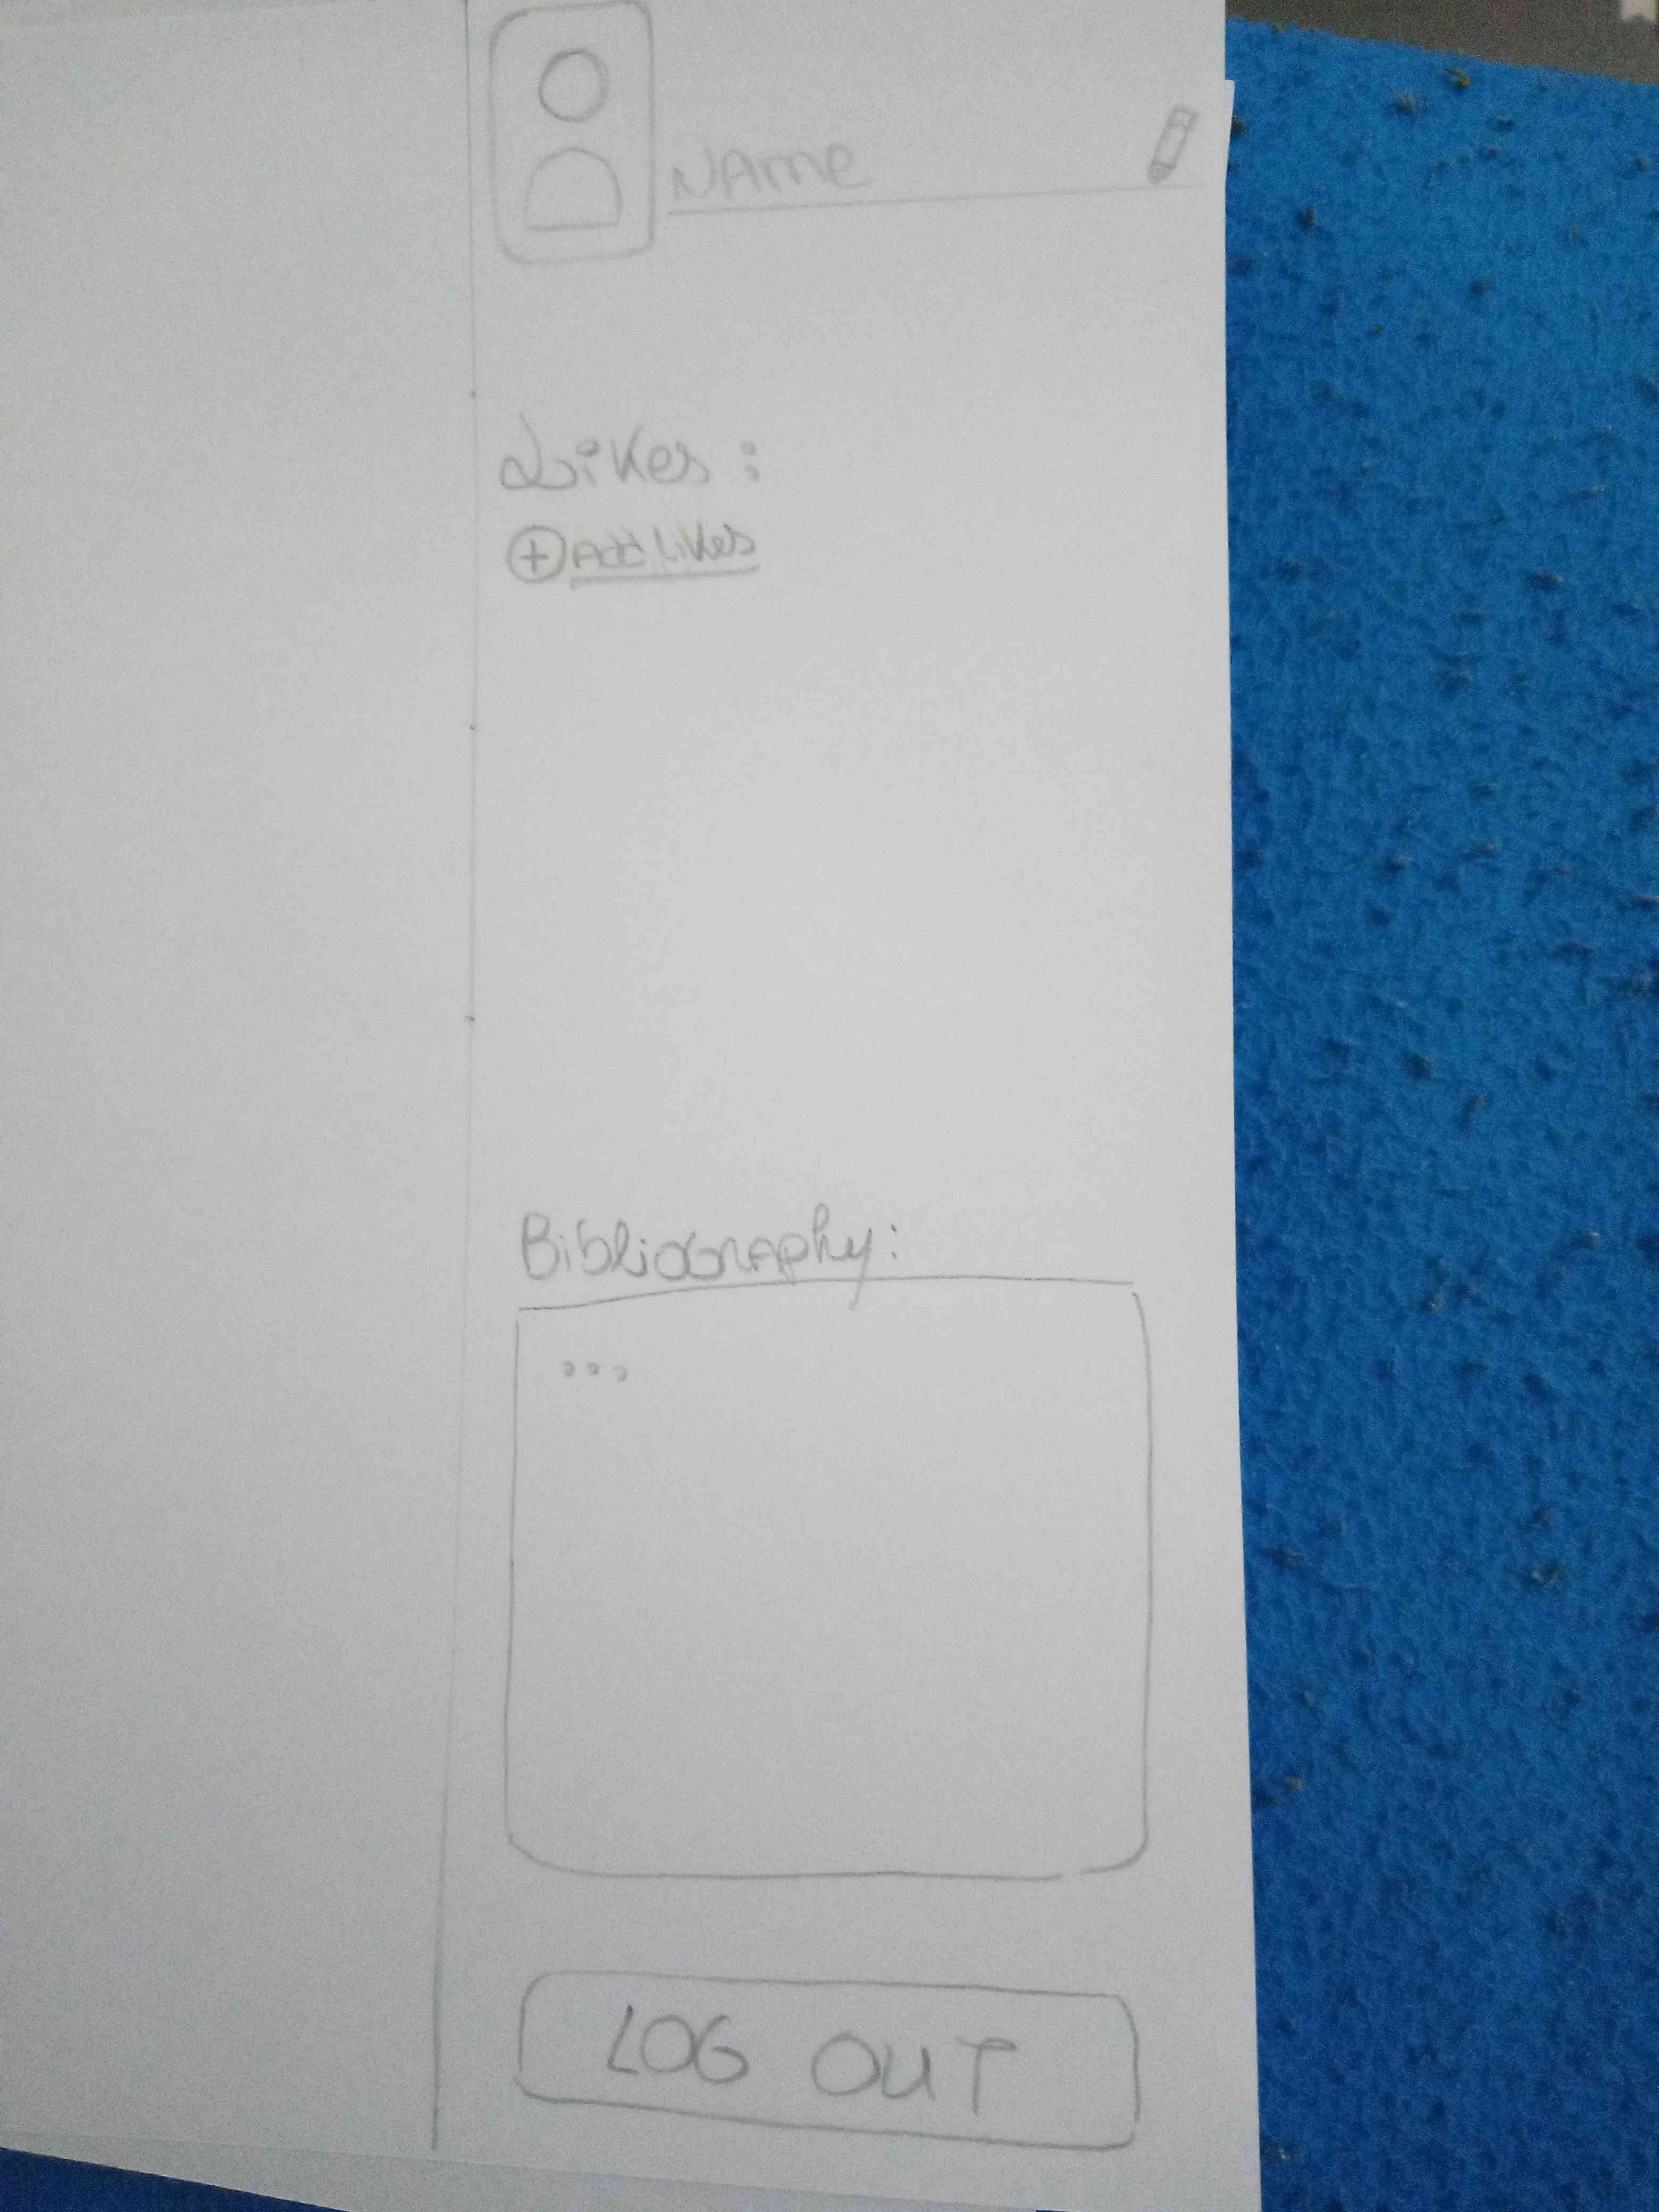 NAme
Likes :
+ Add Likes
Bibliography:
...
LOG OUT